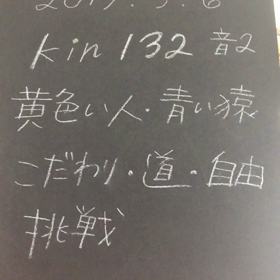 kin 132 音2
黄色い人・青い猿
こだわり・道・自由
挑戦